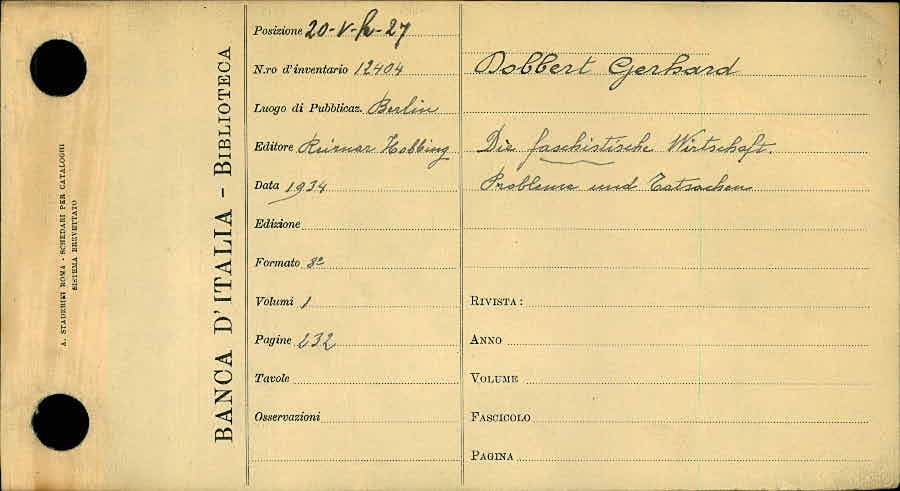 A. STADERINI ROMA - SCHEDARI PER CATALOGHI
SISTEMA BREVETTATO
BANCA D'ITALIA - BIBLIOTECA
Posizione 20-V-h-27
N.ro d'inventario 12404
Luogo di Pubblicaz. Berlin
Editore Reimar Hobbing
Data 1934
Edizione
Formato 8º
Volumi 1
Pagine 232
Tavole
Osservazioni
Dobbert Gerhard
Die faschistische Wirtschaft.
Probleme und Tatsachen
RIVISTA:
ANNO
VOLUME
FASCICOLO
PAGINA